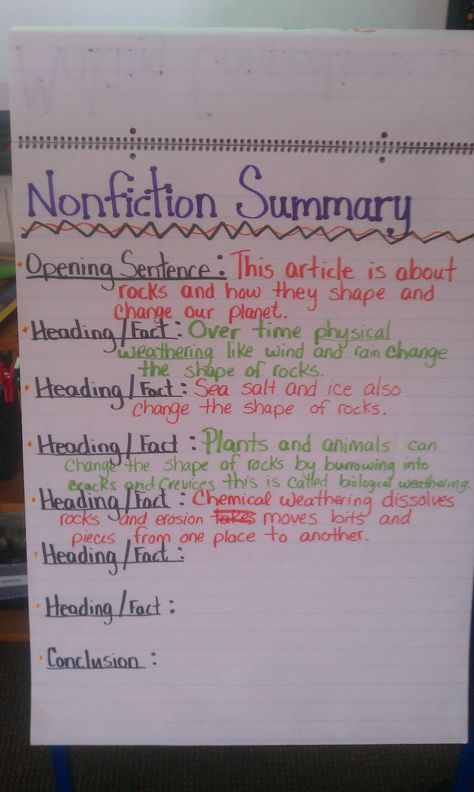 Nonfiction Summary
Opening Sentence: This article is about
rocks and how they shape and
change our planet.
Heading/Fact: Over time physical
weathering like wind and rain change
the shape of rocks.
Heading/Fact: Sea salt and ice also
change the shape of rocks.
Heading/Fact: Plants and animals can
change the shape of rocks by burrowing into
cracks and crevices this is called biological weathering.
Heading/Fact: Chemical weathering dissolves
rocks and erosion takes moves bits and
pieces from one place to another.
Heading/Fact:
Heading/Fact:
Conclusion: